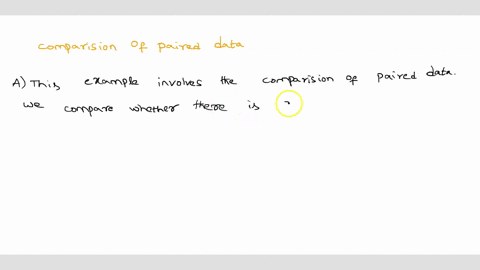 comparision Of paired data
A) This example involves the comparision of paired data.
we compare whether there is